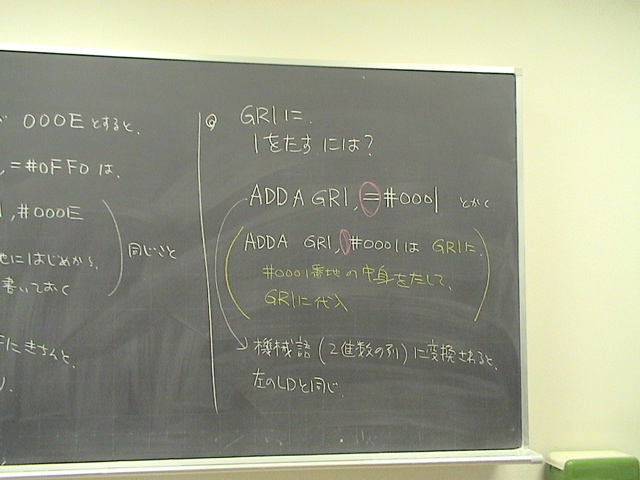 000Eとすると、
,=#0FF0 は、
,#000E
同じこと
地にはじめから、
書いておく
にきちんと、
Q GR1に、
1をたすには?
ADDA GR1,=#0001 とかく
ADDA GR1,#0001は GR1に、
#0001番地の中身をたして、
GR1に代入
機械語(2値数の列)に変換されると、
左のLDと同じ.